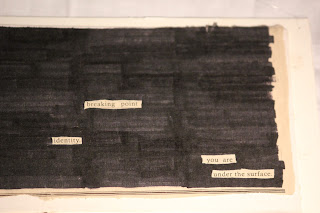 breaking point
identity
you are
under the surface.